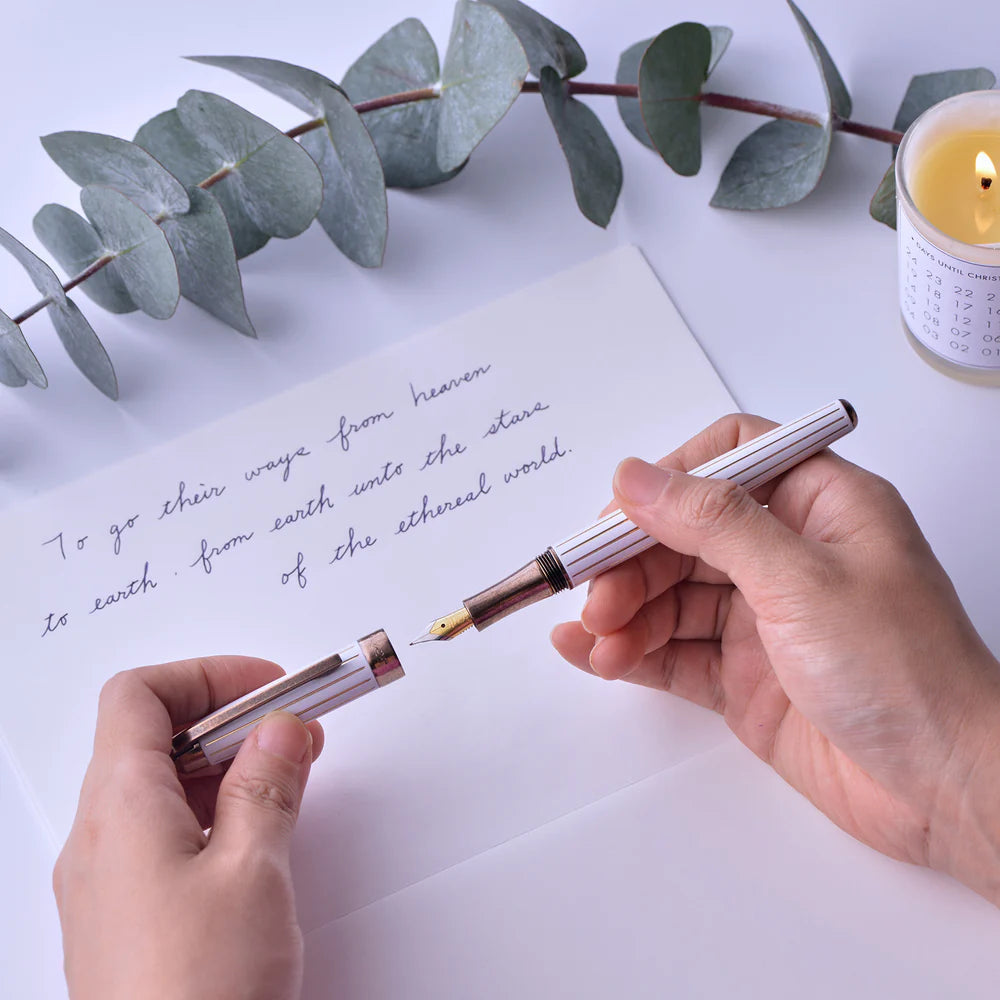 To go their ways from heaven
to earth . from earth unto the stars
of the ethereal world.
DAYS UNTIL CHRIST
24 23 22
19 18 17 16
14 13 12 11
09 08 07 06
04 03 02 01